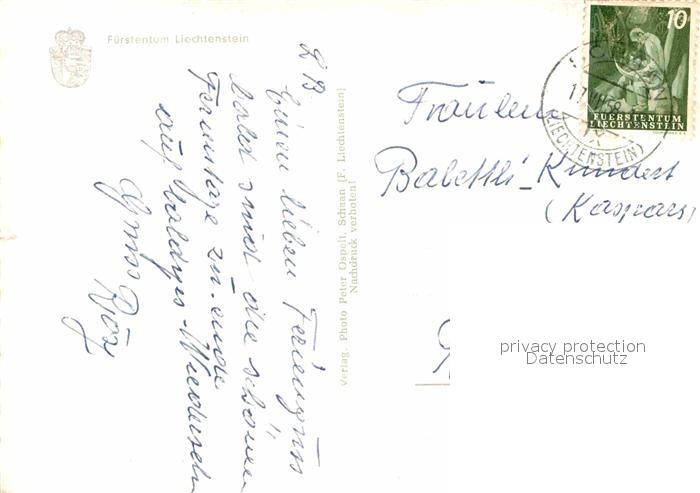 Fürstentum Liechtenstein
L B
Einen lieben Feriengruss
bald sind die schönen
Ferientage zu ende
auf baldiges Wiedersehn
Gruss
Verlag. Photo Peter Ospelt, Schaan (F. Liechtenstein)
Nachdruck verboten!
10
FUERSTENTUM
LIECHTENSTEIN
(LIECHTENSTEIN)
Fräulein
Babettli Kundert
(Kaspars)
privacy protection
Datenschutz